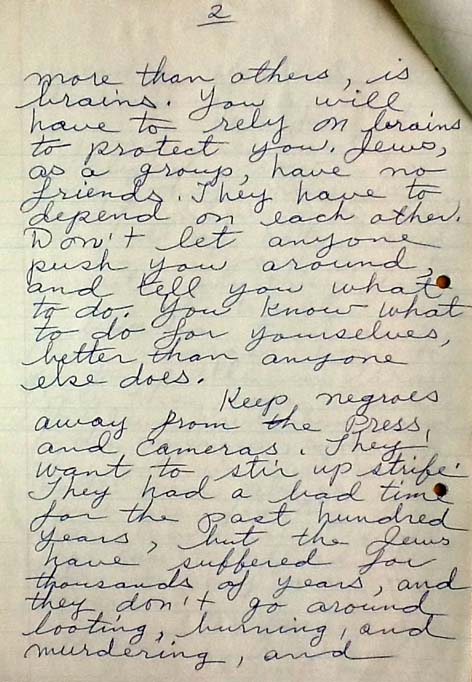 2
more than others, is
brains. You will
have to rely on brains
to protect you. Jews,
as a group, have no
friends. They have to
depend on each other.
Don't let anyone
push you around,
and tell you what
to do. You know what
to do for yourselves,
better than anyone
else does.
Keep negroes
away from the Press,
and cameras. They
want to stir up strife.
They had a bad time
for the past hundred
years, but the Jews
have suffered for
thousands of years, and
they don't go around
looting, burning, and
murdering, and